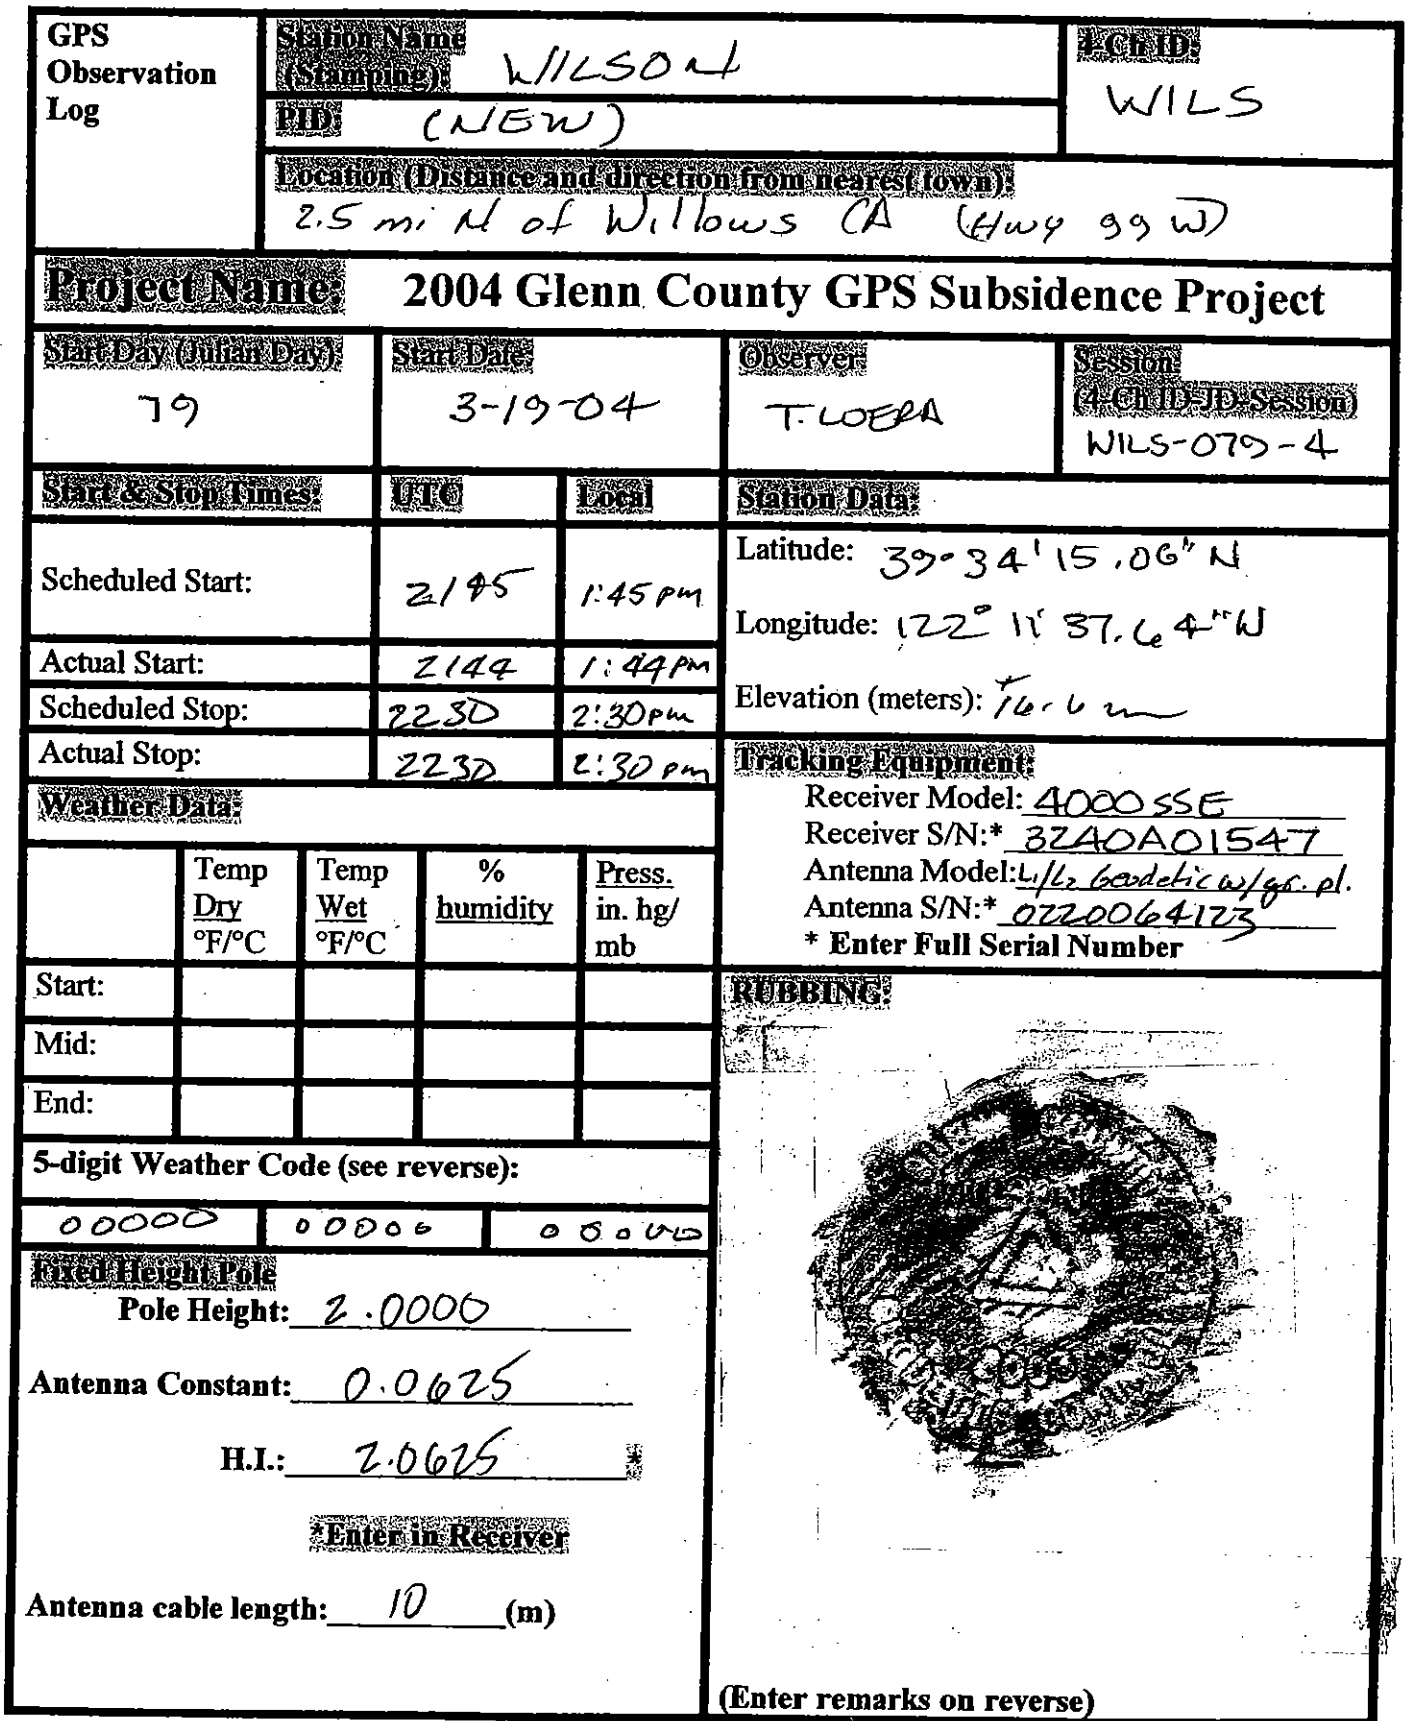 GPS
Observation
Log
Station Name
(Stamping): WILSON
4-Ch ID:
WILS
PID: (NEW)
Location (Distance and direction from nearest town):
2.5 mi N of Willows CA (Hwy 99 W)
Project Name: 2004 Glenn County GPS Subsidence Project
Start Day (Julian Day):
79
Start Date:
3-19-04
Observer:
T. LOERA
Session:
(4-Ch ID-JD-Session)
WILS-079-4
Start & Stop Times: UTC Local
Scheduled Start: 2145 1:45 pm
Actual Start: 2144 1:44 pm
Scheduled Stop: 2230 2:30 pm
Actual Stop: 2230 2:30 pm
Station Data:
Latitude: 39° 34' 15.06" N
Longitude: 122° 11' 37.64" W
Elevation (meters):
Tracking Equipment:
Receiver Model: 4000 SSE
Receiver S/N:* 3240A01547
Antenna Model: L1/L2 Geodetic w/gr. pl.
Antenna S/N:* 0220064123
* Enter Full Serial Number
Weather Data:
Temp
Dry
°F/°C
Temp
Wet
°F/°C
%
humidity
Press.
in. hg/
mb
Start:
Mid:
End:
5-digit Weather Code (see reverse):
00000 00000 00000
Fixed Height Pole
Pole Height: 2.0000
Antenna Constant: 0.0625
H.I.: 2.0625 *
*Enter in Receiver
Antenna cable length: 10 (m)
RUBBING:
(Enter remarks on reverse)